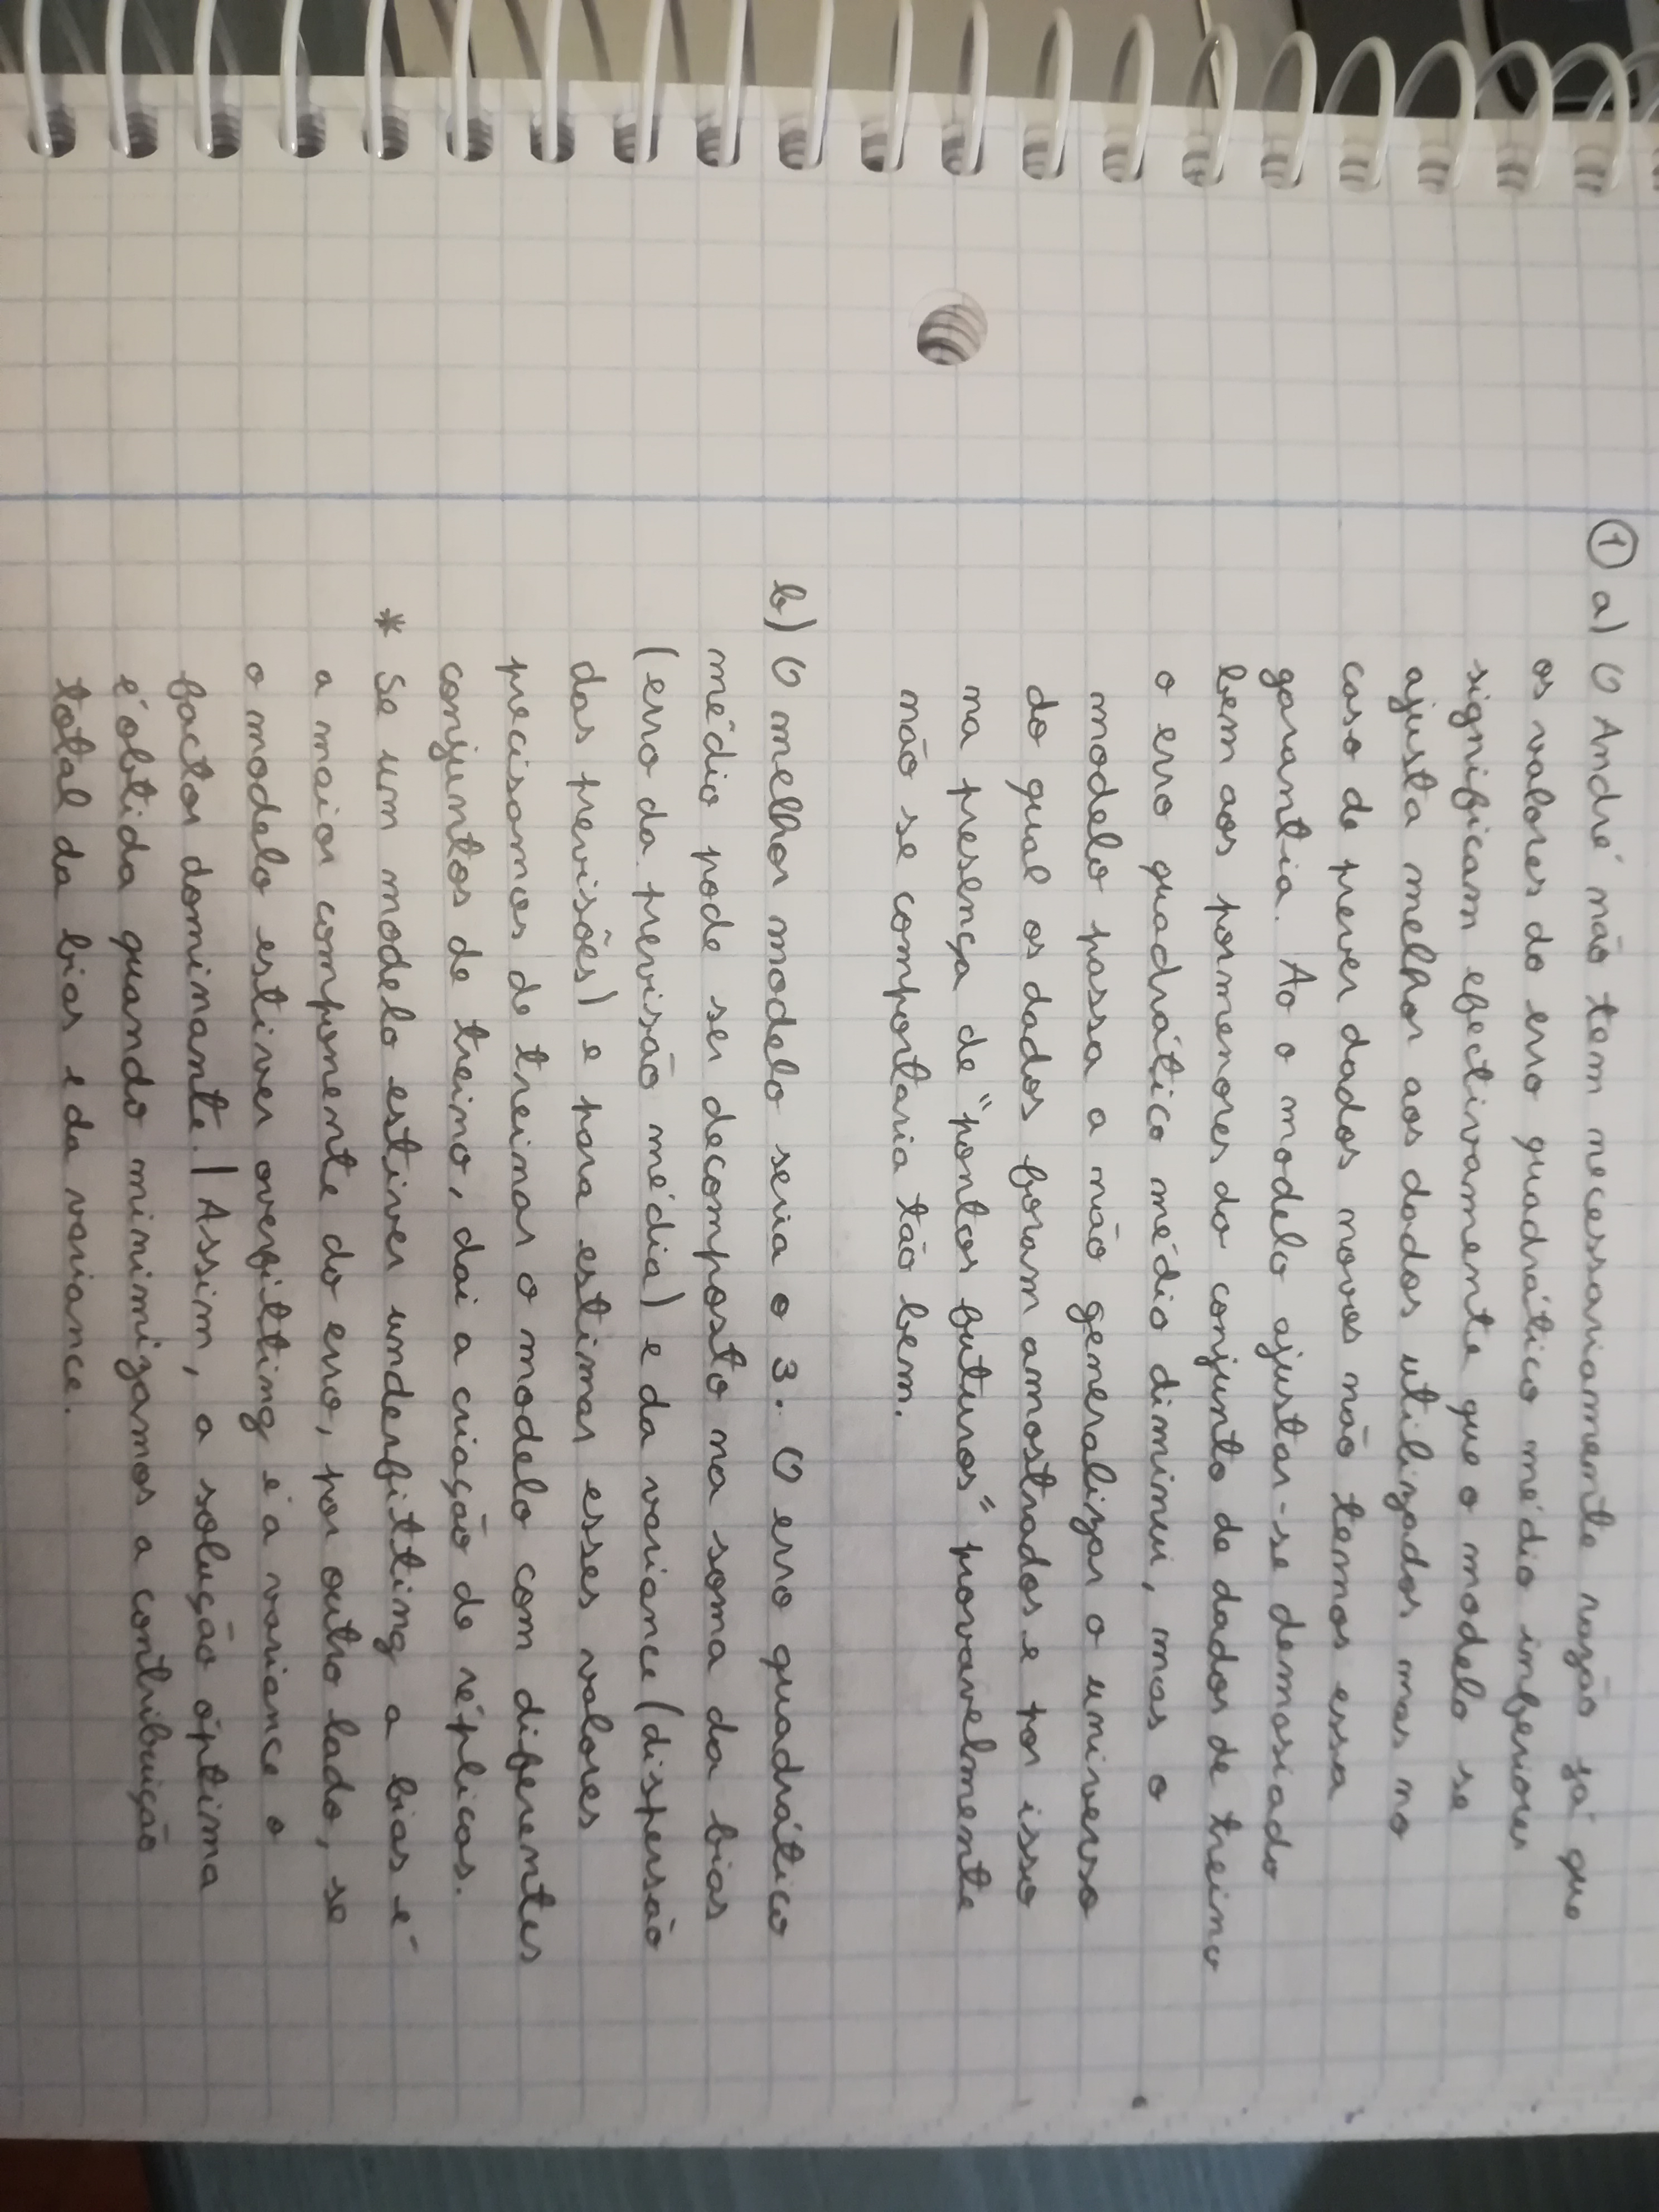 ① a) O André não tem necessariamente razão já que
os valores do erro quadrático médio inferiores
significam efectivamente que o modelo se
ajusta melhor aos dados utilizados mas no
caso de prever dados novos não temos essa
garantia. Ao o modelo ajustar-se demasiado
bem aos pormenores do conjunto de dados de treino
o erro quadrático médio diminui, mas o
modelo passa a não generalizar o universo
do qual os dados foram amostrados e por isso
na presença de "pontos futuros" provavelmente
não se comportaria tão bem.
b) O melhor modelo seria o 3. O erro quadrático
médio pode ser decomposto na soma da bias
(erro da previsão média) e da variance (dispersão
das previsões) e para estimar esses valores
precisamos de treinar o modelo com diferentes
conjuntos de treino, daí a criação de réplicas.
* Se um modelo estiver underfitting a bias é
a maior componente do erro, por outro lado, se
o modelo estiver overfitting é a variance o
factor dominante. | Assim, a solução óptima
é obtida quando minimizamos a contribuição
total da bias e da variance.